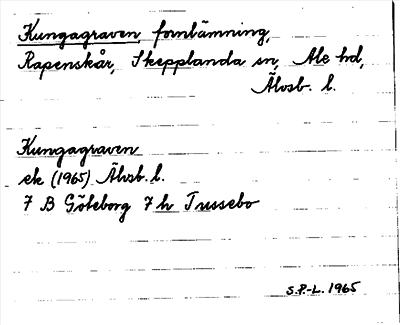 Kungagraven, fornlämning,
Rapenskår, Skepplanda sn, Ale hd,
Älvsb. l.
Kungagraven
ek (1965) Älvsb. l.
7 B Göteborg 7 h Tussebo
S.P.-L. 1965